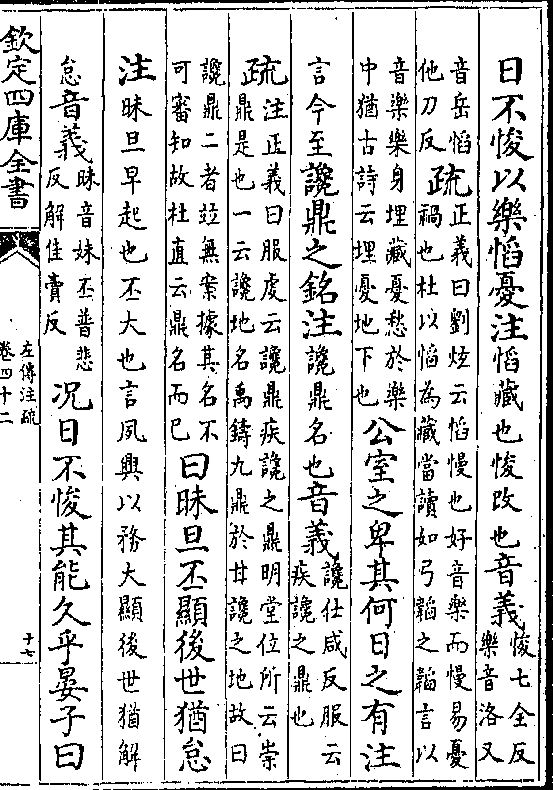 日不悛以樂慆憂注慆藏也悛改也音義悛七全反樂音洛又
音岳慆他刀反疏正義曰劉炫云慆慢也好音樂而慢易憂禍也杜以慆為藏當讀如弓韜之韜言以
音樂樂身埋藏憂愁於樂中猶古詩云埋憂地下也公室之卑其何日之有注
言今至讒鼎之銘注讒鼎名也音義讒仕咸反服云疾讒之鼎也
疏注正義曰服虔云讒鼎疾讒之鼎明堂位所云崇鼎是也一云讒地名禹鑄九鼎於甘讒之地故曰
讒鼎二者並無案據其名不可審知故杜直云鼎名而已曰昧旦丕顯後世猶怠
注昧旦早起也丕大也言夙興以務大顯後世猶解
怠音義昧音妹丕普悲反解佳賣反況日不悛其能久乎晏子曰
欽定四庫全書
左傳注疏
卷四十二
十七